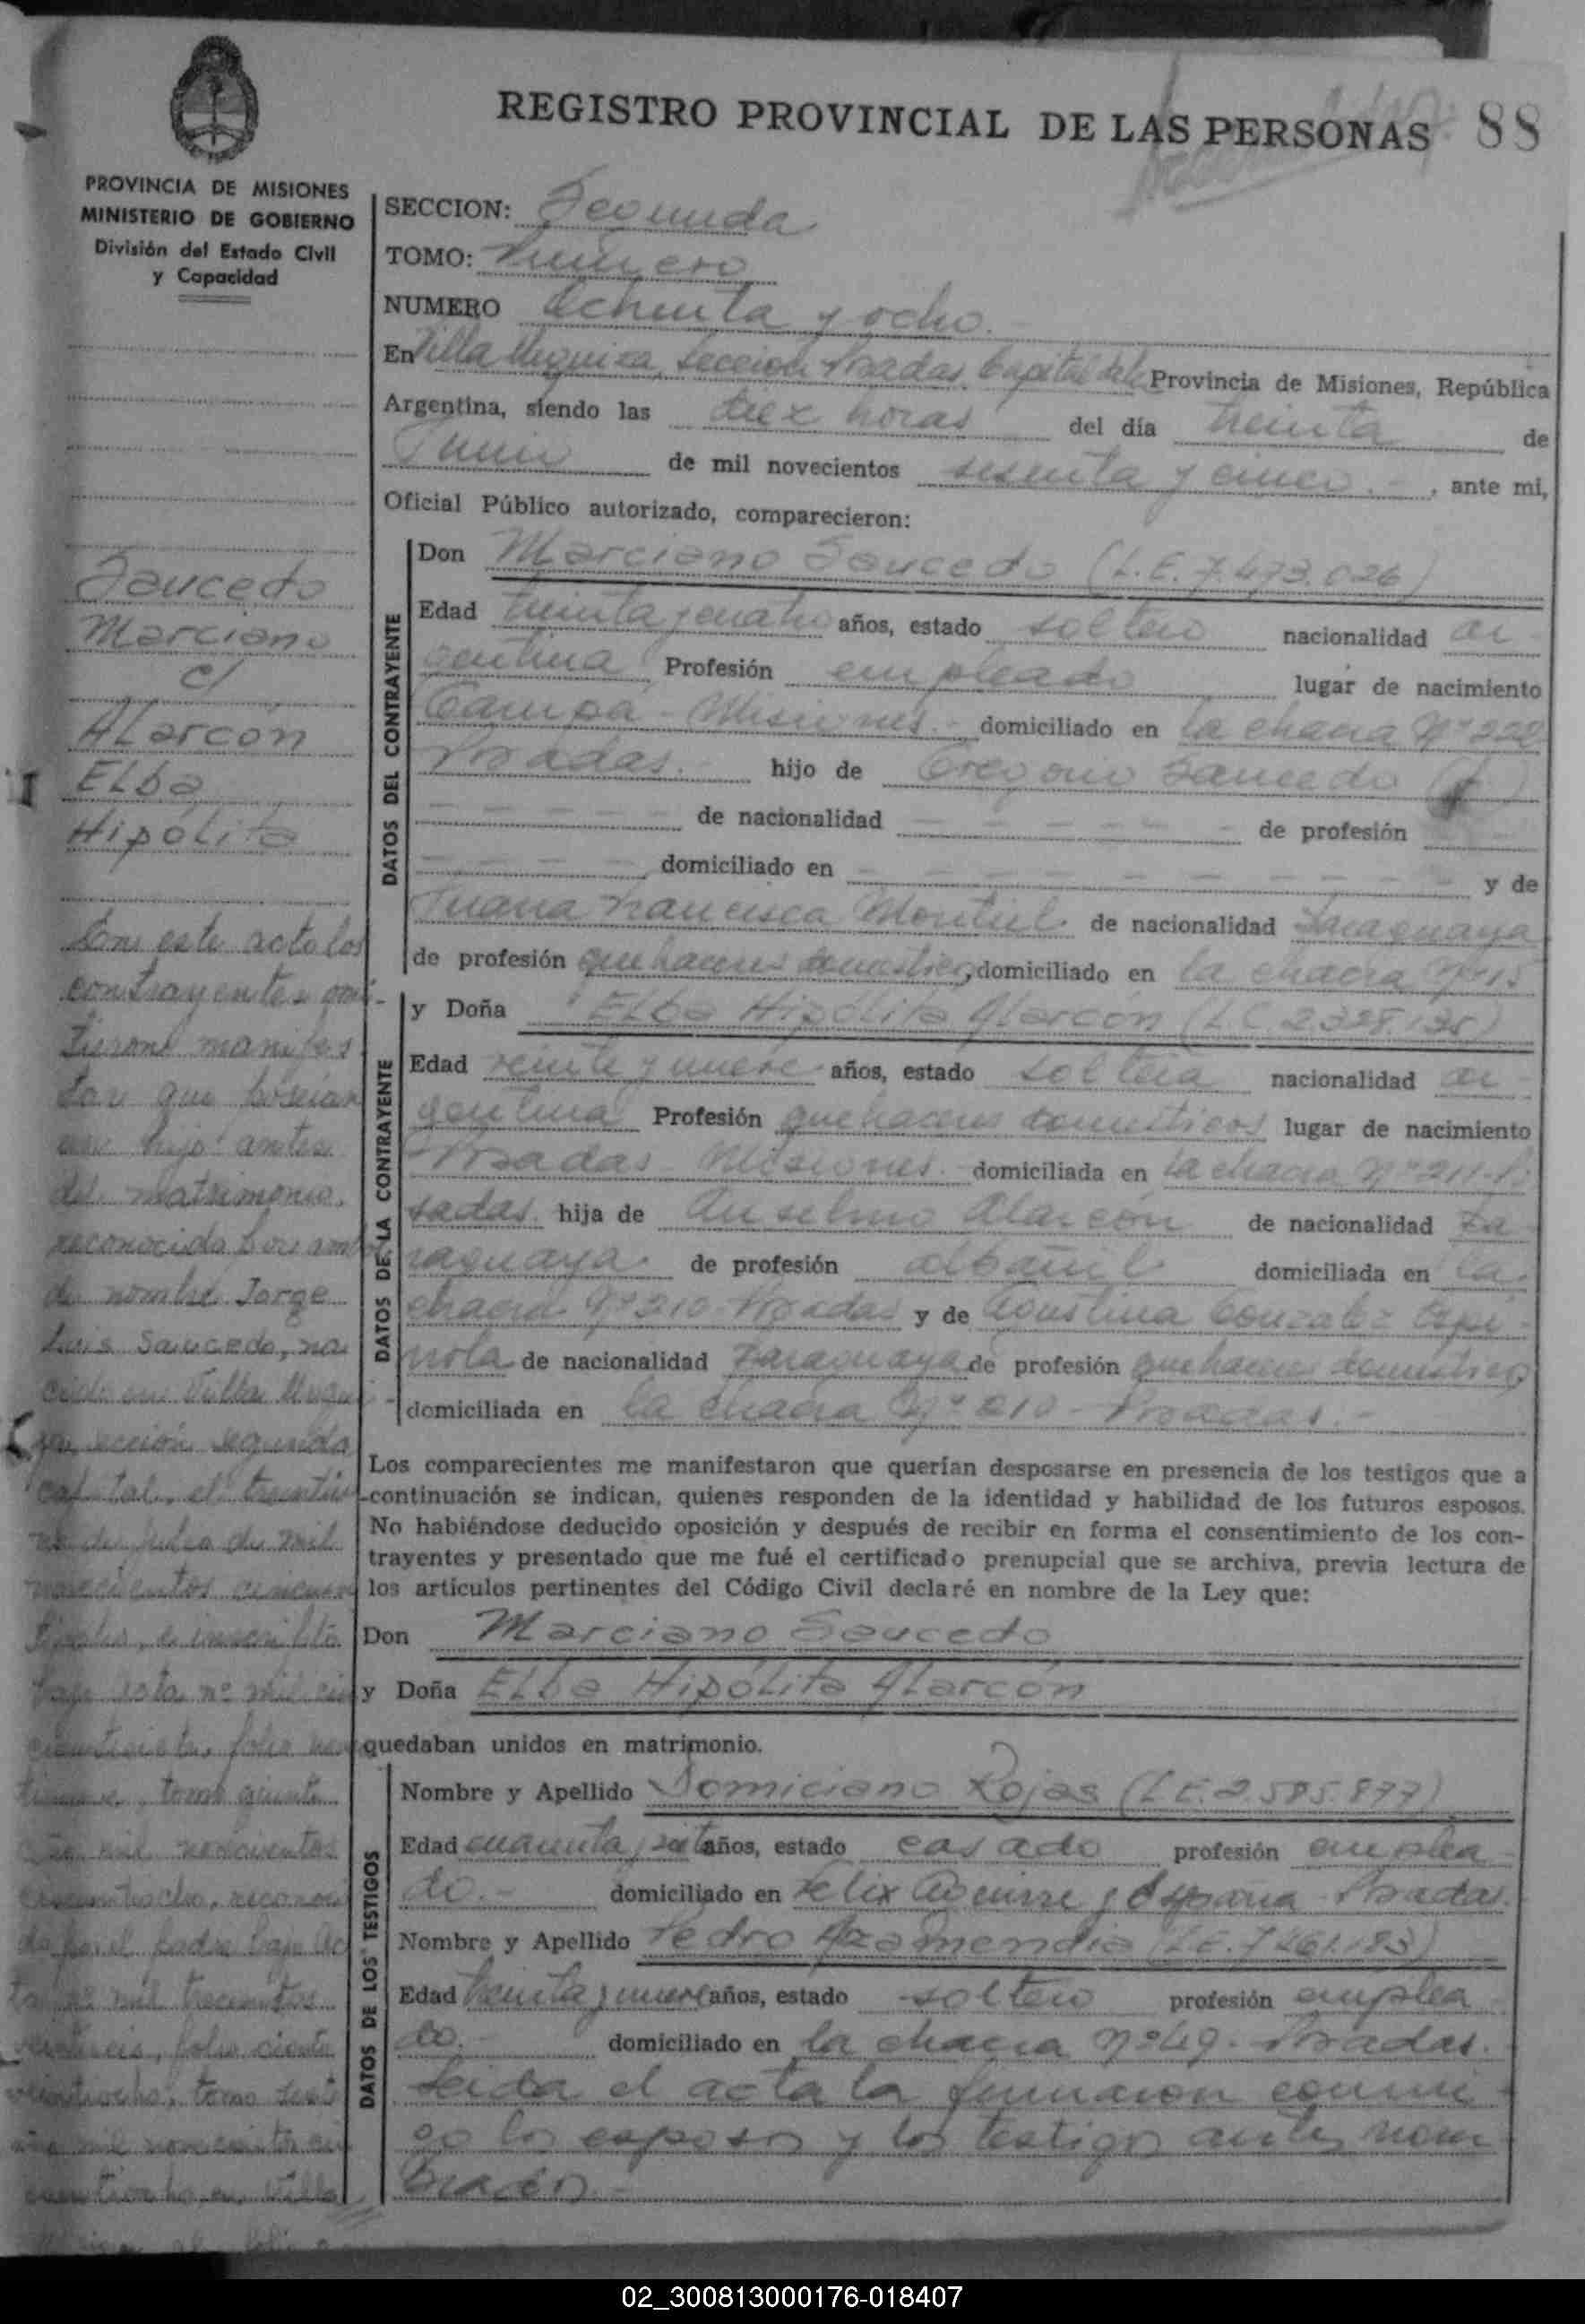 REGISTRO PROVINCIAL DE LAS PERSONAS 88
PROVINCIA DE MISIONES
MINISTERIO DE GOBIERNO
División del Estado Civil
y Capacidad
Saucedo
Marciano
c/
Alarcón
Elba
Hipólita
En este acto los
contrayentes omi-
tieron manifes
tar que poseían
un hijo antes
del matrimonio,
reconocido por ambos
de nombre Jorge
Luis Saucedo, na
cido en Villa Urqui
za sección segunda
capital, el treintiu
no de julio de mil
novecientos cincuen
tiocho, e inscripto
bajo acta nº mil cin
folio
tomo quinto
año mil novecientos
cincuentiocho, reconoci
do por el padre bajo Ac
ta nº mil trecientos
veintiseis, folio ciento
veintiocho, tomo sexto
año mil novecientos cin
cuentiocho en Villa
SECCION: Segunda
TOMO: Primero
NUMERO Ochenta y ocho.
En Villa Urquiza, Sección Posadas Capital de la Provincia de Misiones, República
Argentina, siendo las diez horas del día treinta de
Junio de mil novecientos sesenta y cinco.-, ante mi,
Oficial Público autorizado, comparecieron:
DATOS DEL CONTRAYENTE
Don Marciano Saucedo (L.E. 7.473.026)
Edad treinta y cuatro años, estado soltero nacionalidad ar-
gentina Profesión empleado lugar de nacimiento
Campa - Misiones.- domiciliado en la chacra Nº 222
Posadas.- hijo de Gregorio Saucedo (f)
de nacionalidad - - - - - de profesión
- - - - domiciliado en - - - - - - - - y de
Juana Francisca Montiel de nacionalidad Paraguaya
de profesión quehaceres domésticos, domiciliado en la chacra Nº 15
DATOS DE LA CONTRAYENTE
y Doña Elba Hipólita Alarcón (LC 2.328.135)
Edad veinte y nueve años, estado soltera nacionalidad ar-
gentina Profesión quehaceres domésticos lugar de nacimiento
Posadas Misiones.- domiciliada en la chacra Nº 211-Po
sadas. hija de Anselmo Alarcón de nacionalidad Pa
raguaya. de profesión albañil domiciliada en la
chacra Nº 210 Posadas y de Agustina Gonzalez Espí-
nola de nacionalidad Paraguaya de profesión quehaceres domésticos
domiciliada en la chacra Nº 210 - Posadas.-
Los comparecientes me manifestaron que querían desposarse en presencia de los testigos que a
continuación se indican, quienes responden de la identidad y habilidad de los futuros esposos.
No habiéndose deducido oposición y después de recibir en forma el consentimiento de los con-
trayentes y presentado que me fué el certificado prenupcial que se archiva, previa lectura de
los artículos pertinentes del Código Civil declaré en nombre de la Ley que:
Don Marciano Saucedo
y Doña Elba Hipólita Alarcón
quedaban unidos en matrimonio.
DATOS DE LOS TESTIGOS
Nombre y Apellido Domiciano Rojas (L.E. 2.585.877)
Edad cuarenta y siete años, estado casado profesión emplea-
do.- domiciliado en Felix Aguirre y España Posadas.
Nombre y Apellido Pedro Azamendia (L.E. 7.461.183)
Edad treinta y nueve años, estado soltero profesión emplea
do.- domiciliado en la chacra Nº 49. Posadas.
Leida el acta la firmaron conmi-
go los esposos y los testigos antes nom-
brados.-
02_300813000176-018407